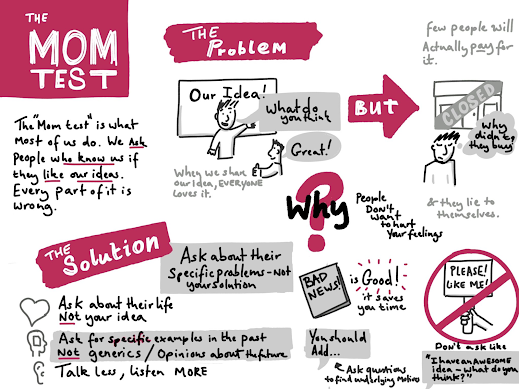 THE
MOM
TEST
The "Mom test" is what
most of us do. We Ask
People who know us if
they like our ideas.
Every part of it is
wrong.
THE
Problem
Our Idea!
What do
you think
Great!
When we share
our Idea, EVERYONE
Loves it.
BUT
few people will
Actually pay for
it.
CLOSED
Why
didn't
they buy
& they lie to
themselves.
?
Why
People
Don't
want
to hurt
Your feelings
THE
Solution
Ask about their
Specific problems - Not
your solution
Ask about their life
Not your idea
Ask for specific examples in the past
Not generics / Opinions about the future
Talk less, listen MORE
BAD
NEWS!
is Good!
it saves
you time
You should
Add...
Ask questions
to find underlying motives
PLEASE!
LIKE ME!
Don't ask like
"I have an AWESOME
idea - what do you
think?"